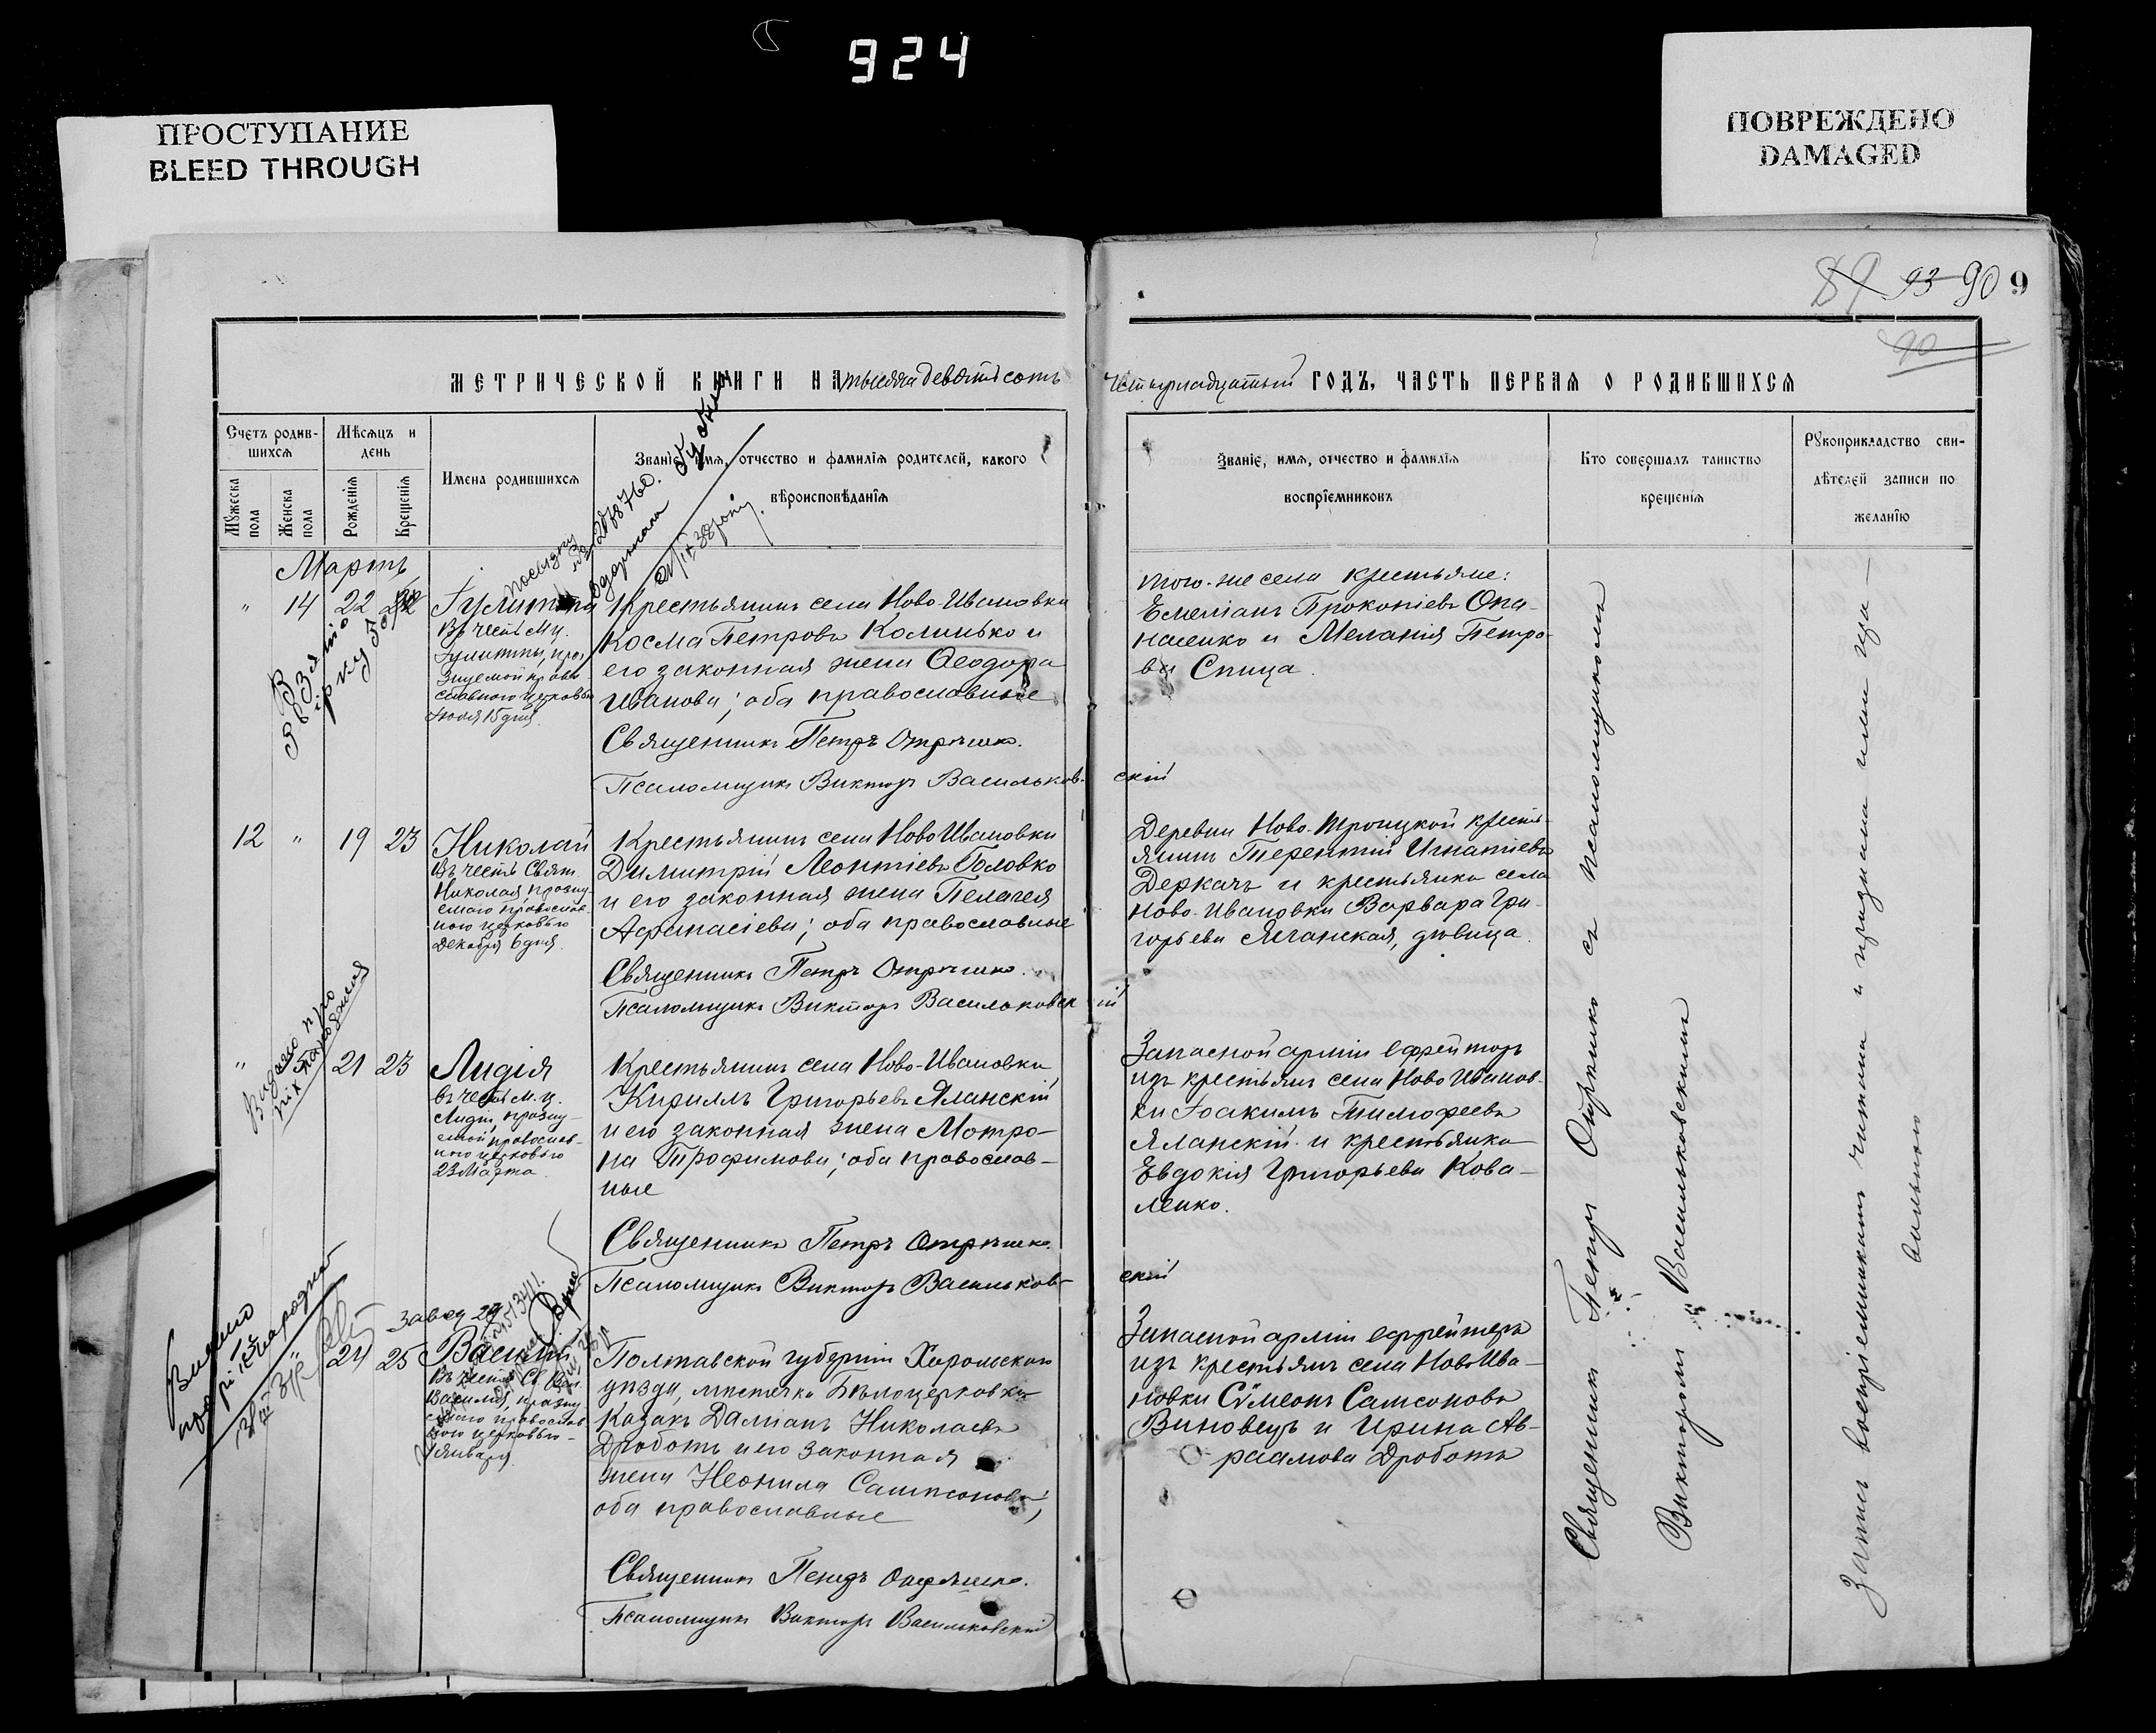 924
ПРОСТУПАНИЕ
BLEED THROUGH
ПОВРЕЖДЕНО
DAMAGED
89 93 90 9
90
МЕТРИЧЕСКОЙ КНИГИ НА тысяча девятьсотъ четырнадцатый ГОДЪ, ЧАСТЬ ПЕРВАЯ О РОДИВШИХСЯ
Счетъ родив-
шихся
Мѣсяцъ и
день
Мужеска
пола
Женска
пола
Рожденія
Крещенія
Имена родившихся
Званіе, имя, отчество и фамилія родителей, какого
вѣроисповѣданія
Званіе, имя, отчество и фамилія
воспріемниковъ
Кто совершалъ таинство
крещенія
Рукоприкладство сви-
дѣтелей записи по
желанію
Мартъ
" 14 22
Іулитта
Въ честь Мц.
Іулитты, праз
днуемой право
славною церковью
Іюля 15 дня.
Крестьянинъ села Ново-Ивановки
Косма Петровъ Калинько и
его законная жена Ѳеодора
Иванова; оба православные
Священникъ Петръ Отрѣшко.
Псаломщикъ Викторъ Васильков-
скій
того-же села крестьяне:
Емеліанъ Прокопіевъ Опа-
насенко и Меланія Петро-
ва Спица.
12 " 19 23
Николай
Въ честь Свят.
Николая, праздну-
емаго православ-
ною церковью
Декабря 6 дня.
Крестьянинъ села Ново Ивановки
Димитрій Леонтіевъ Головко
и его законная жена Пелагея
Афанасіева; оба православные
Священникъ Петръ Отрѣшко.
Псаломщикъ Викторъ Васильковск
ій
Деревни Ново-Троицкой кресть-
янинъ Терентій Игнатіевъ
Деркачъ и крестьянка села
Ново-Ивановки Варвара Гри-
горьева Яланская, дѣвица.
" 15 21 23
Лидія
въ честь М. ц.
Лидіи, праздну-
емой православ-
ною церковью
23 Марта.
Крестьянинъ села Ново-Ивановки
Кириллъ Григорьевъ Яланскій
и его законная жена Мотро-
на Трофимова; оба православ-
ные
Священникъ Петръ Отрѣшко.
Псаломщикъ Викторъ Васильков-
скій
Запасной арміи ефрейторъ
изъ крестьянъ села Ново Иванов-
ки Іоакимъ Тимофеевъ
Яланскій и крестьянка
Евдокія Григорьева Кова-
ленко.
13 " 24 25
Василій
Въ честь Св. Вас.
Василія, праздну
емаго православ
ною церковью
1 Января.
Полтавской губерніи Хорольскаго
уѣзда, мѣстечка Бѣлоцерковки
Казакъ Даміанъ Николаевъ
Дроботъ и его законная
жена Неонила Сампсонова;
оба православные
Священникъ Петръ Отрѣшко.
Псаломщикъ Викторъ Васильковскій
Запасной арміи ефрейторъ
изъ крестьянъ села Ново Ива-
новки Сѵмеонъ Самсоновъ
Виновецъ и Ирина Ав-
раамова Дроботъ
Священникъ Петръ Отрѣшко съ псаломщикомъ
Викторомъ Васильковскимъ